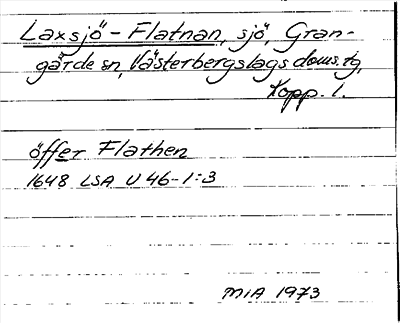 Laxsjö-Flatnan, sjö, Gran-
gärde sn, Västerbergslags doms. tg,
Kopp. l.
öffer Flathen
1648 LSA U 46-1:3
MIA 1973